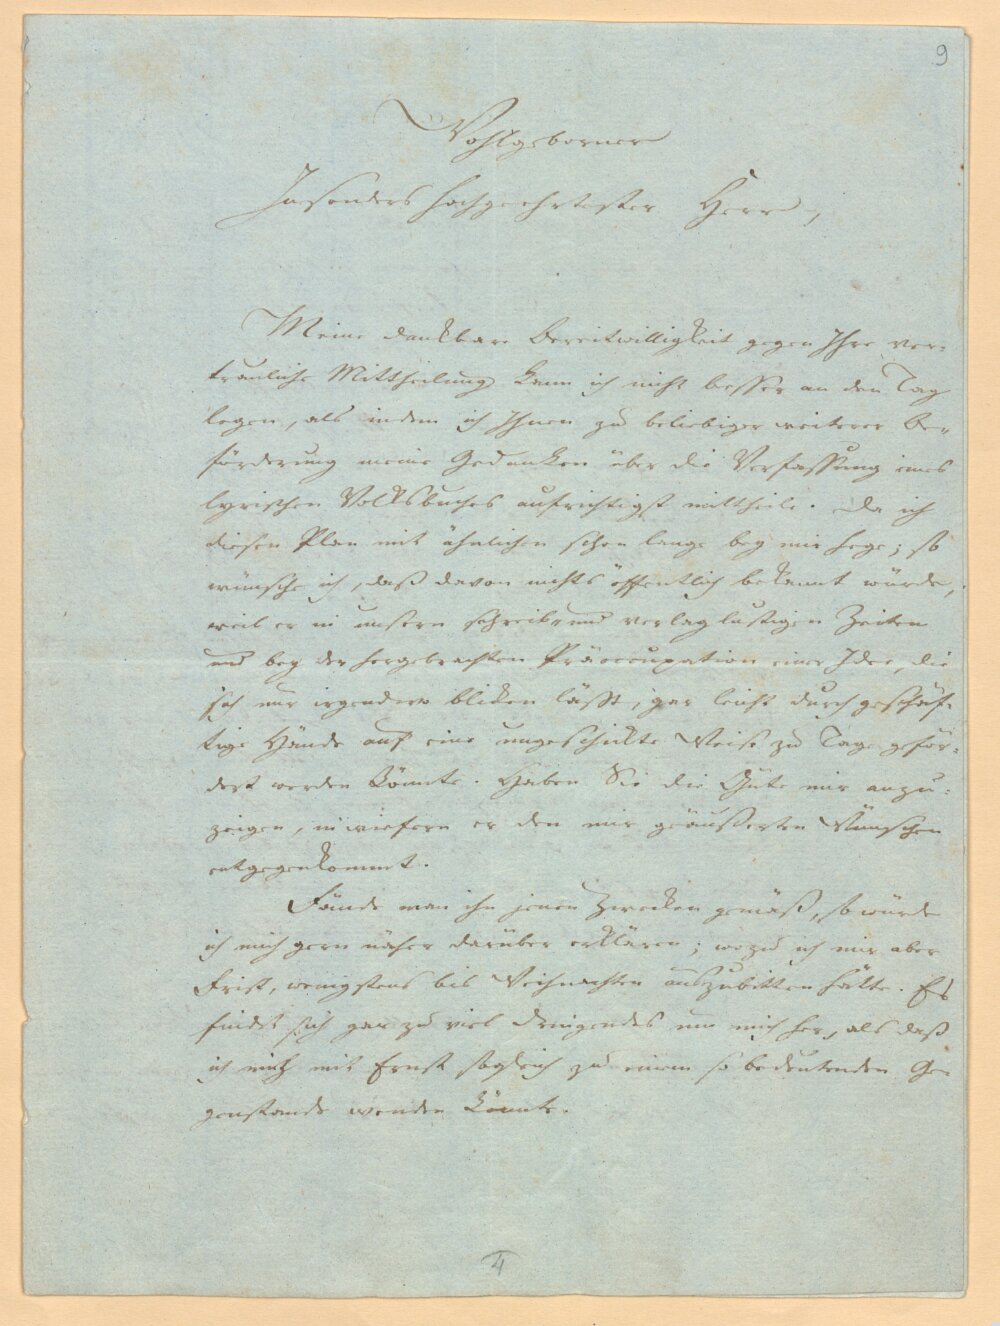 9
Wohlgeborner
Insonders hochgeehrtester Herr,
Meine dankbare Bereitwilligkeit gegen Ihre ver-
trauliche Mittheilung kann ich nicht besser an den Tag
legen, als indem ich Ihnen zu beliebiger weiterer Be-
förderung meine Gedanken über die Verfassung eines
lyrischen Volksbuches aufrichtigst mittheile. Da ich
diesen Plan mit ähnlichen schon lange bey mir hege; so
wünsche ich, daß davon nichts öffentlich bekannt würde,
weil er in unsern schreib- und verlaglustigen Zeiten
und bey der hergebrachten Präoccupation einer Idee, die
sich nur irgendwo blicken lässt, gar leicht durch geschäf-
tige Hände auf eine ungeschickte Weise zu Tage geför-
dert werden könnte. Haben Sie die Güte mir anzu-
zeigen, inwiefern er den mir geäußerten Wünschen
entgegenkommt.
Fände man ihn jenen Zwecken gemäß, so würde
ich mich gern näher darüber erklären; wozu ich mir aber
Frist, wenigstens bis Weihnachten auszubitten hätte. Es
findet sich gar zu viel dringendes um mich her, als daß
ich mich mit Ernst sogleich zu einem so bedeutenden Ge-
genstande wenden könnte.
4